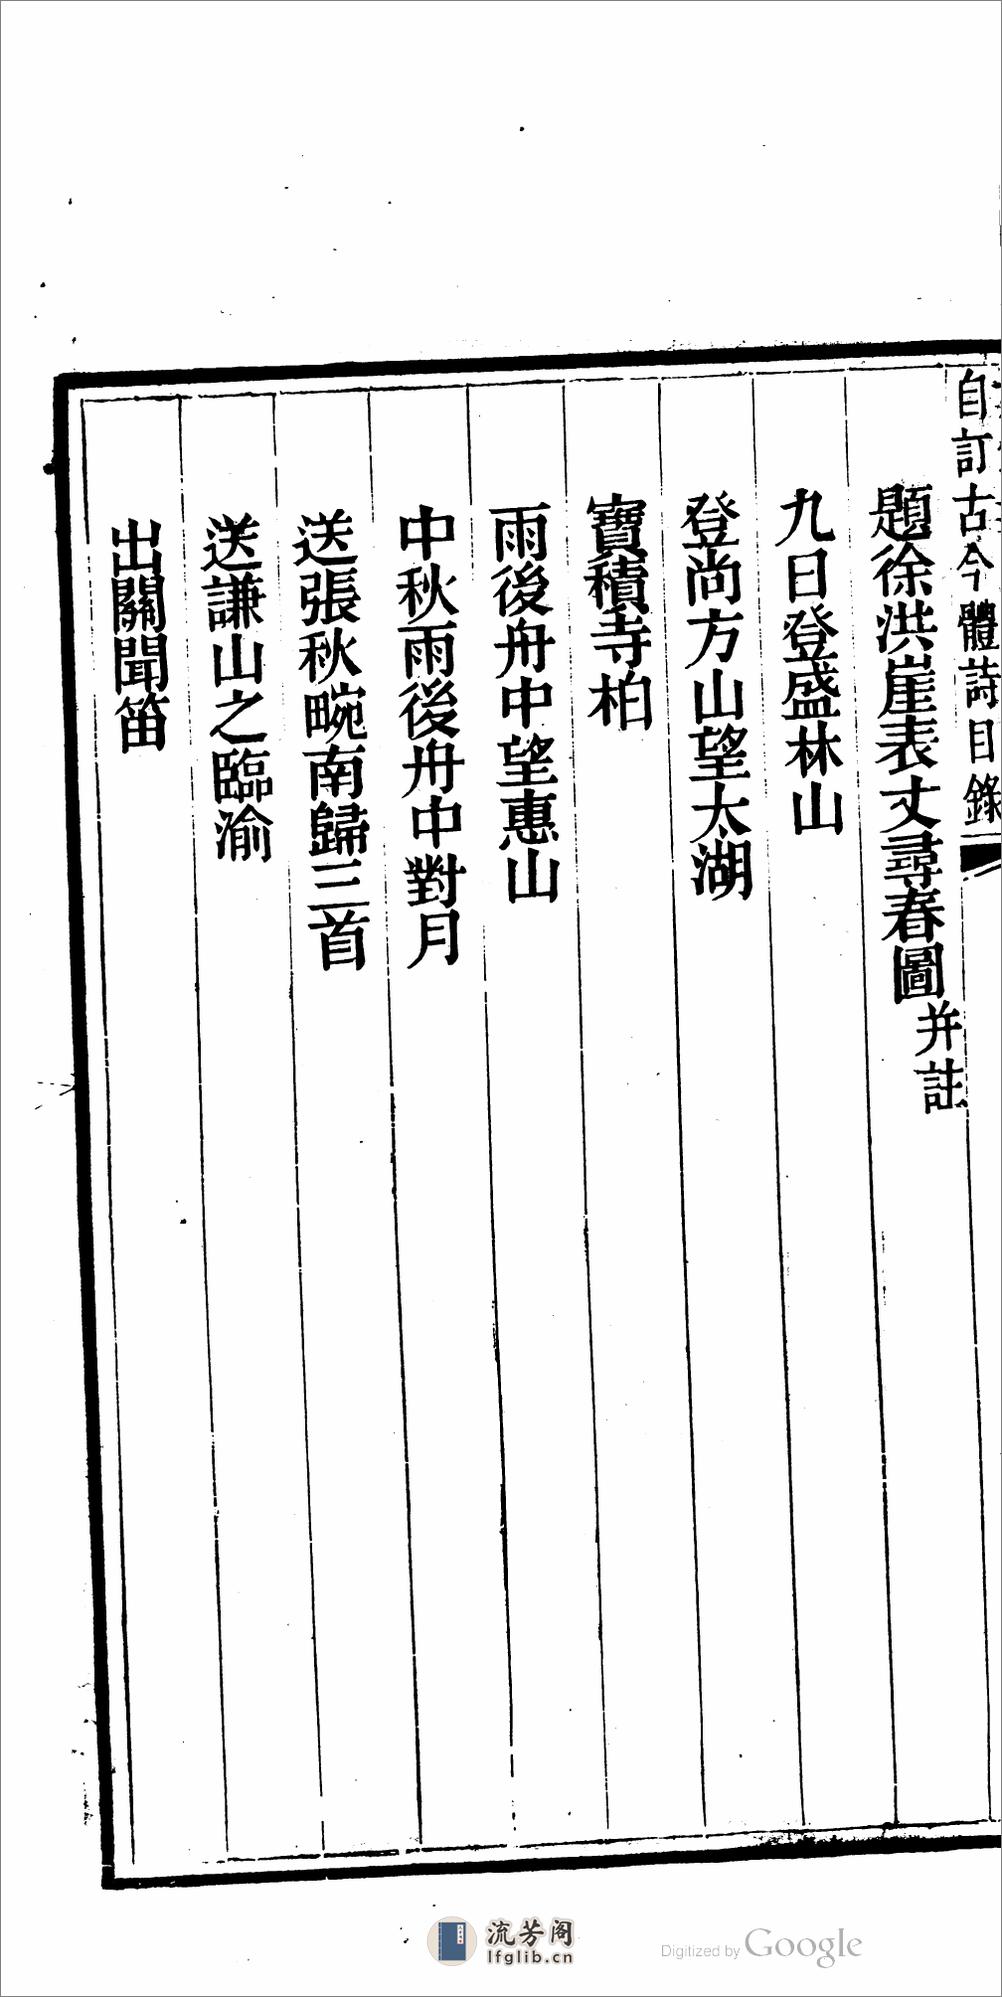 自訂古今體詩目錄
題徐洪崖表丈尋春圖并註
九日登盛林山
登尚方山望太湖
寶積寺柏
雨後舟中望惠山
中秋雨後舟中對月
送張秋畹南歸三首
送謙山之臨渝
出關聞笛
流芳阁
lfglib.cn
Digitized by Google